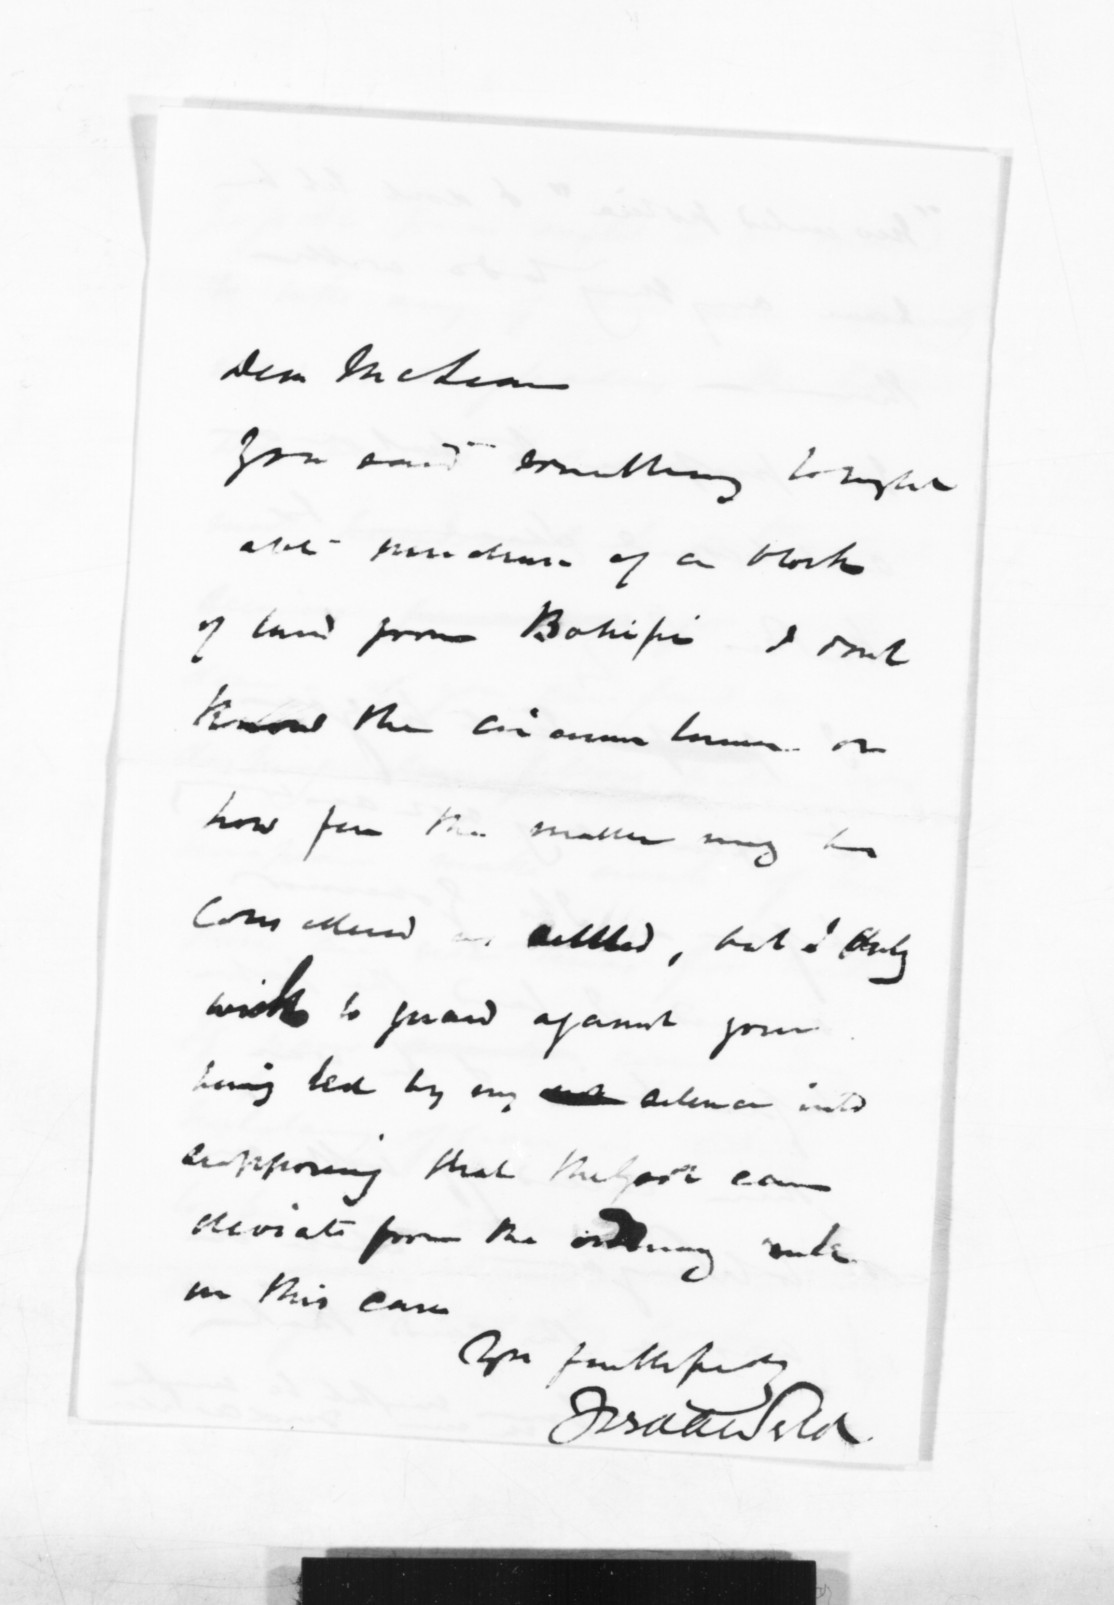 Dear McLean
You said something tonight
abt purchase of a block
of land from Bohipi I dont
know the circumstances or
how far the matter may be
considered as settled, but I only
wish to guard against your
being led by my silence into
supposing that the Govt can
deviate from the ordinary rule
in this case
Yrs faithfully
Fred A Weld